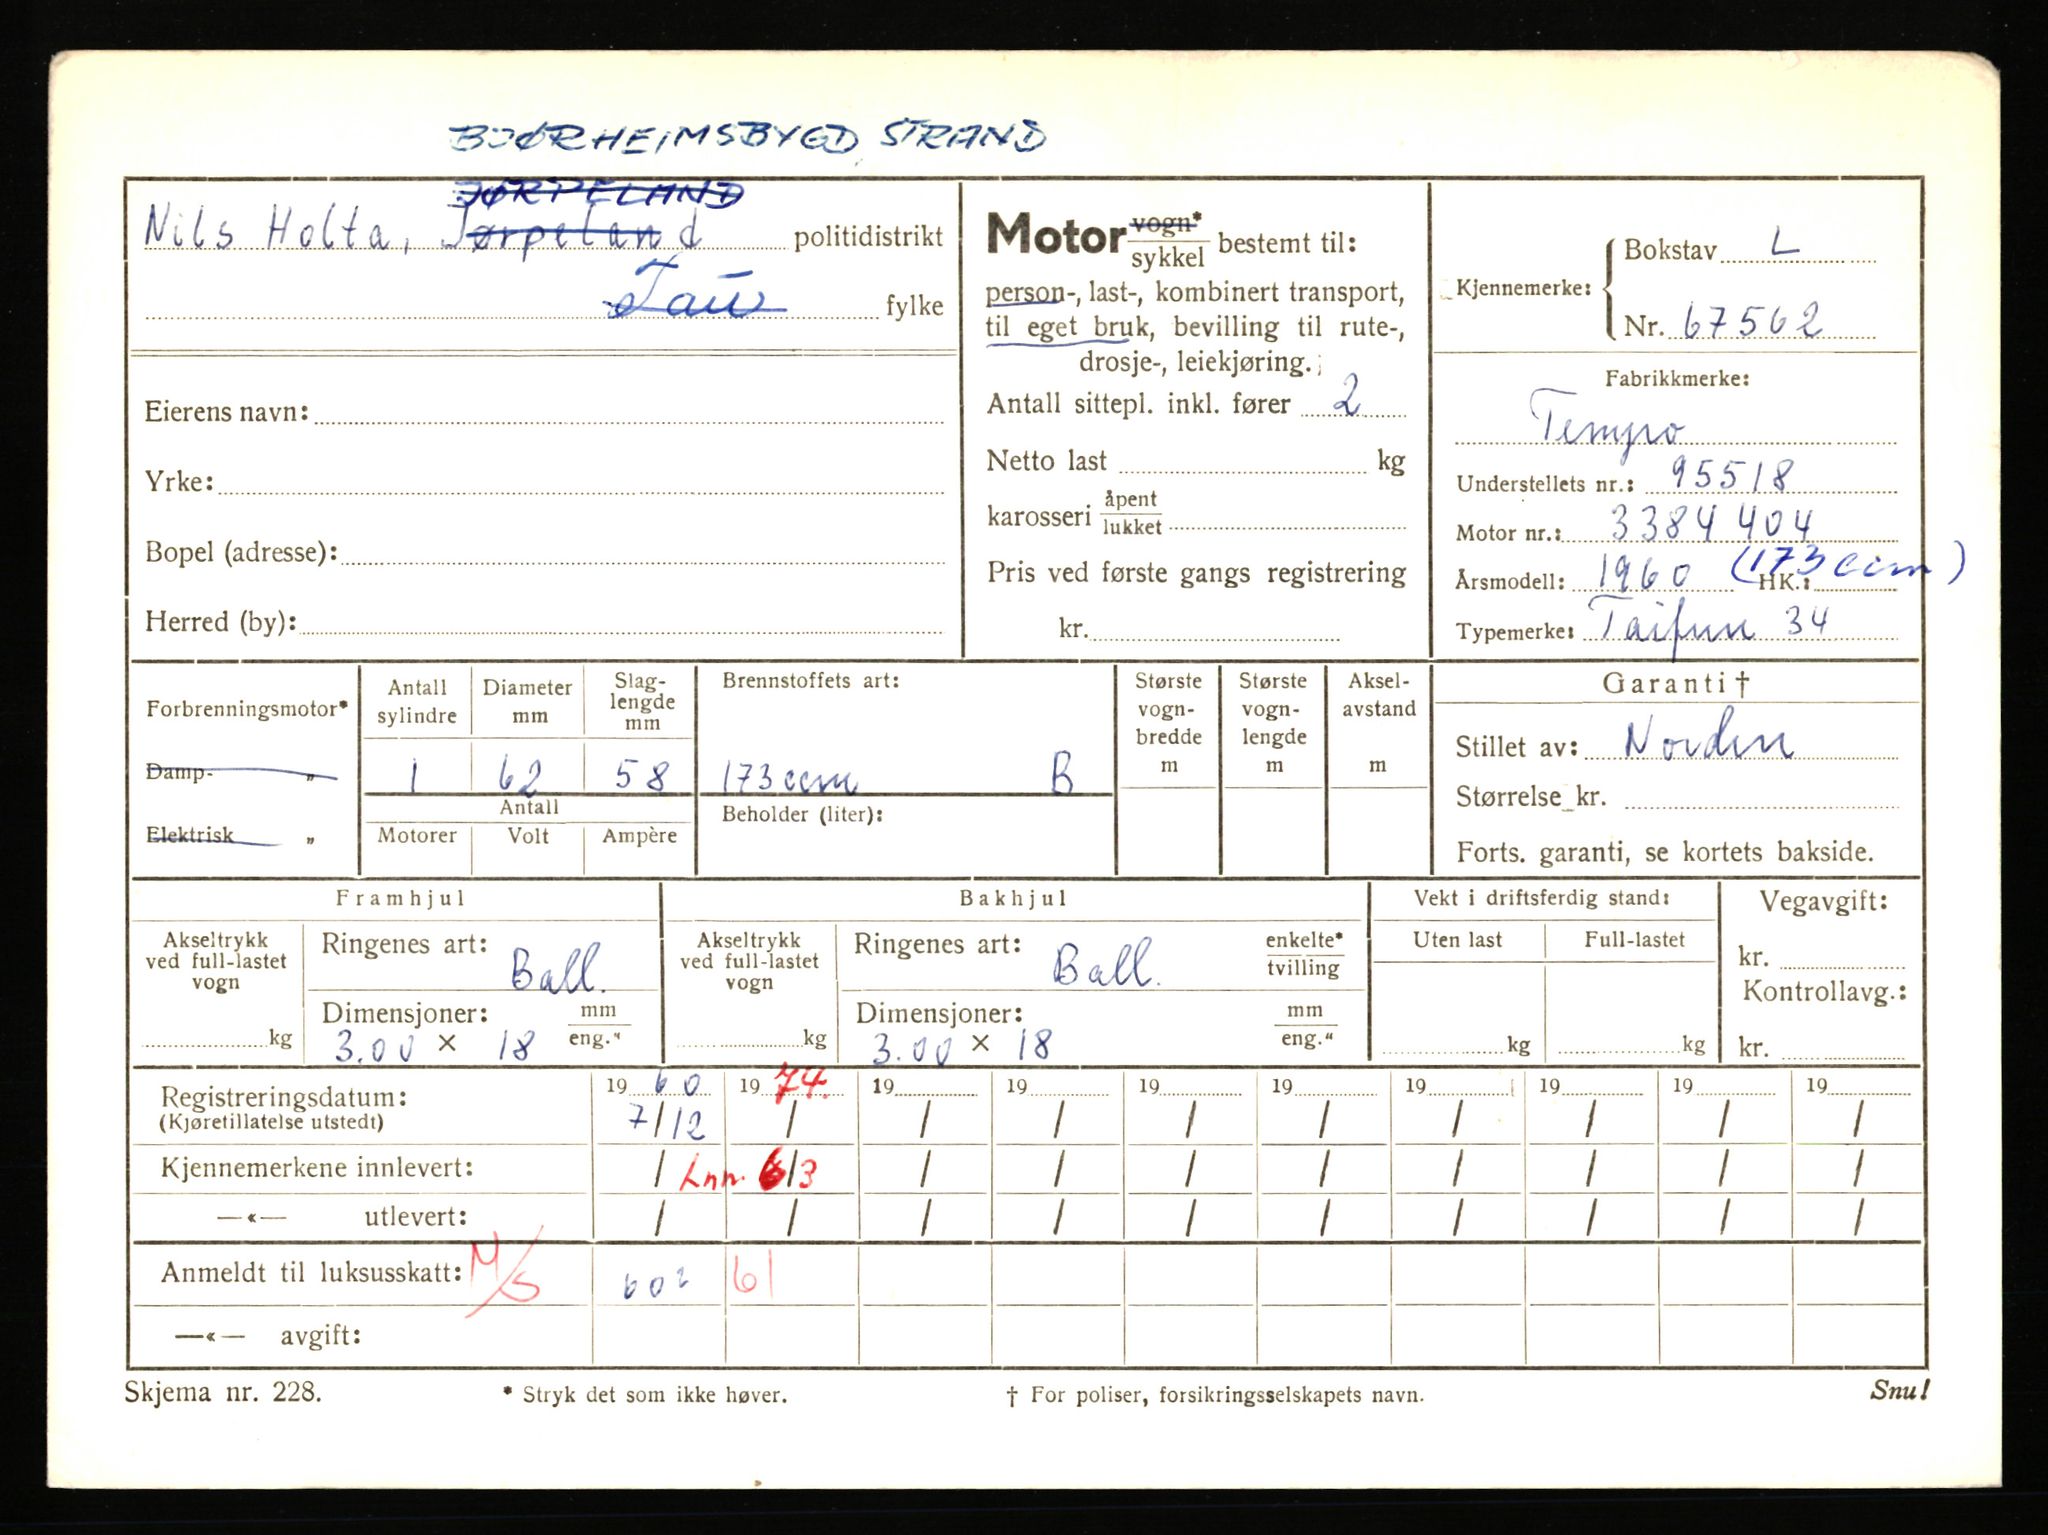 BJØRHEIMSBYGD STRAND
JØRPELAND
Nils Holta, Jørpeland politidistrikt
Tau fylke
Eierens navn:
Yrke:
Bopel (adresse):
Herred (by):
Motor vogn* / sykkel bestemt til:
person-, last-, kombinert transport,
til eget bruk, bevilling til rute-,
drosje-, leiekjøring.
Antall sittepl. inkl. fører 2
Netto last kg
karosseri åpent / lukket
Pris ved første gangs registrering
kr.
Kjennemerke:
Bokstav L
Nr. 67562
Fabrikkmerke:
Tempo
Understellets nr.: 95518
Motor nr.: 3384 404
Årsmodell: 1960 HK.: (173 ccm)
Typemerke: Taifun 34
Forbrenningsmotor*
Damp- „
Elektrisk „
Antall sylindre
Diameter mm
Slag-lengde mm
1 62 58
Antall
Motorer Volt Ampère
Brennstoffets art:
173 ccm B
Beholder (liter):
Største vogn-bredde m
Største vogn-lengde m
Aksel-avstand m
Garanti †
Stillet av: Norden
Størrelse kr.
Forts. garanti, se kortets bakside.
Framhjul
Akseltrykk ved full-lastet vogn
kg
Ringenes art: Ball.
Dimensjoner: mm / eng."
3.00 × 18
Bakhjul
Akseltrykk ved full-lastet vogn
kg
Ringenes art: Ball. enkelte* / tvilling
Dimensjoner: mm / eng."
3.00 × 18
Vekt i driftsferdig stand:
Uten last Full-lastet
kg kg
Vegavgift:
kr.
Kontrollavg.:
kr.
Registreringsdatum: 19 60 19 74. 19 19 19 19 19 19 19 19
(Kjøretillatelse utstedt) 7/12 / / / / / / / / /
Kjennemerkene innlevert: / Inn. 6/3 / / / / / / / /
—«— utlevert: / / / / / / / / / /
Anmeldt til luksusskatt: M/S 602 61
—«— avgift:
Skjema nr. 228. * Stryk det som ikke høver. † For poliser, forsikringsselskapets navn. Snu!